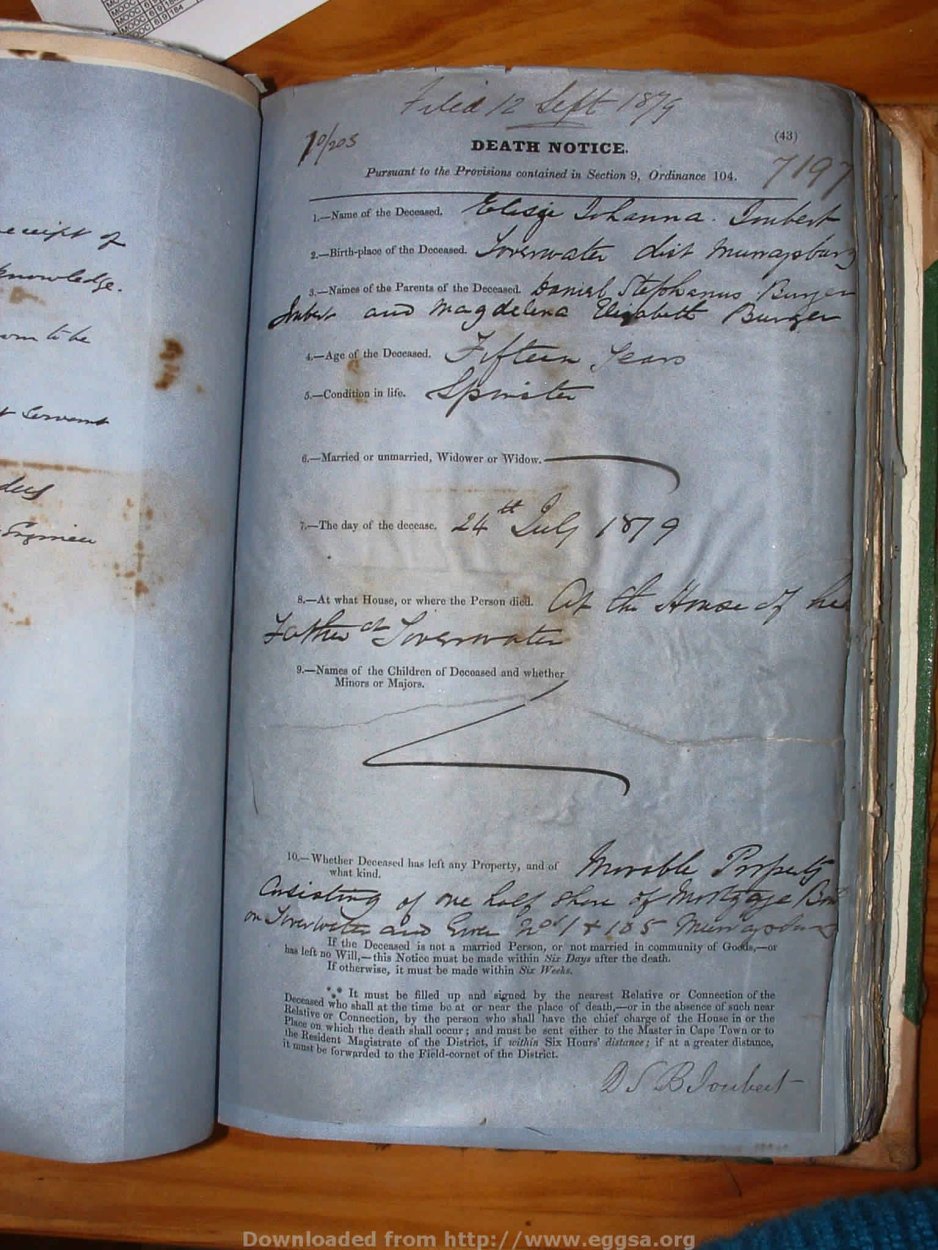 MOOC 6/9/184
eceipt of
knowledge.
to be
t Servant
Engineer
Filed 12 Sept 1879
DEATH NOTICE.
(43)
7197
Pursuant to the Provisions contained in Section 9, Ordinance 104.
1.—Name of the Deceased. Elesije Johanna Joubert
2.—Birth-place of the Deceased. Soverwater dist Murraysburg
3.—Names of the Parents of the Deceased. Daniel Stephanus Burger
Joubert and Magdelena Elizabeth Burger
4.—Age of the Deceased. Fifteen Years
5.—Condition in life. Spinster
6.—Married or unmarried, Widower or Widow.
7.—The day of the decease. 24th July 1879
8.—At what House, or where the Person died. At the House of her
Father at Soverwater
9.—Names of the Children of Deceased and whether
Minors or Majors.
10.—Whether Deceased has left any Property, and of
what kind. Movable Property
Consisting of one half Share of Mortgage Bond
on and No 1 + 185 Murraysburg
If the Deceased is not a married Person, or not married in community of Goods,—or
has left no Will,—this Notice must be made within Six Days after the death.
If otherwise, it must be made within Six Weeks.
*** It must be filled up and signed by the nearest Relative or Connection of the
Deceased who shall at the time be at or near the place of death,—or in the absence of such near
Relative or Connection, by the person who shall have the chief charge of the House in or the
Place on which the death shall occur; and must be sent either to the Master in Cape Town or to
the Resident Magistrate of the District, if within Six Hours' distance; if at a greater distance,
it must be forwarded to the Field-cornet of the District.
D S B Joubert
Downloaded from http://www.eggsa.org